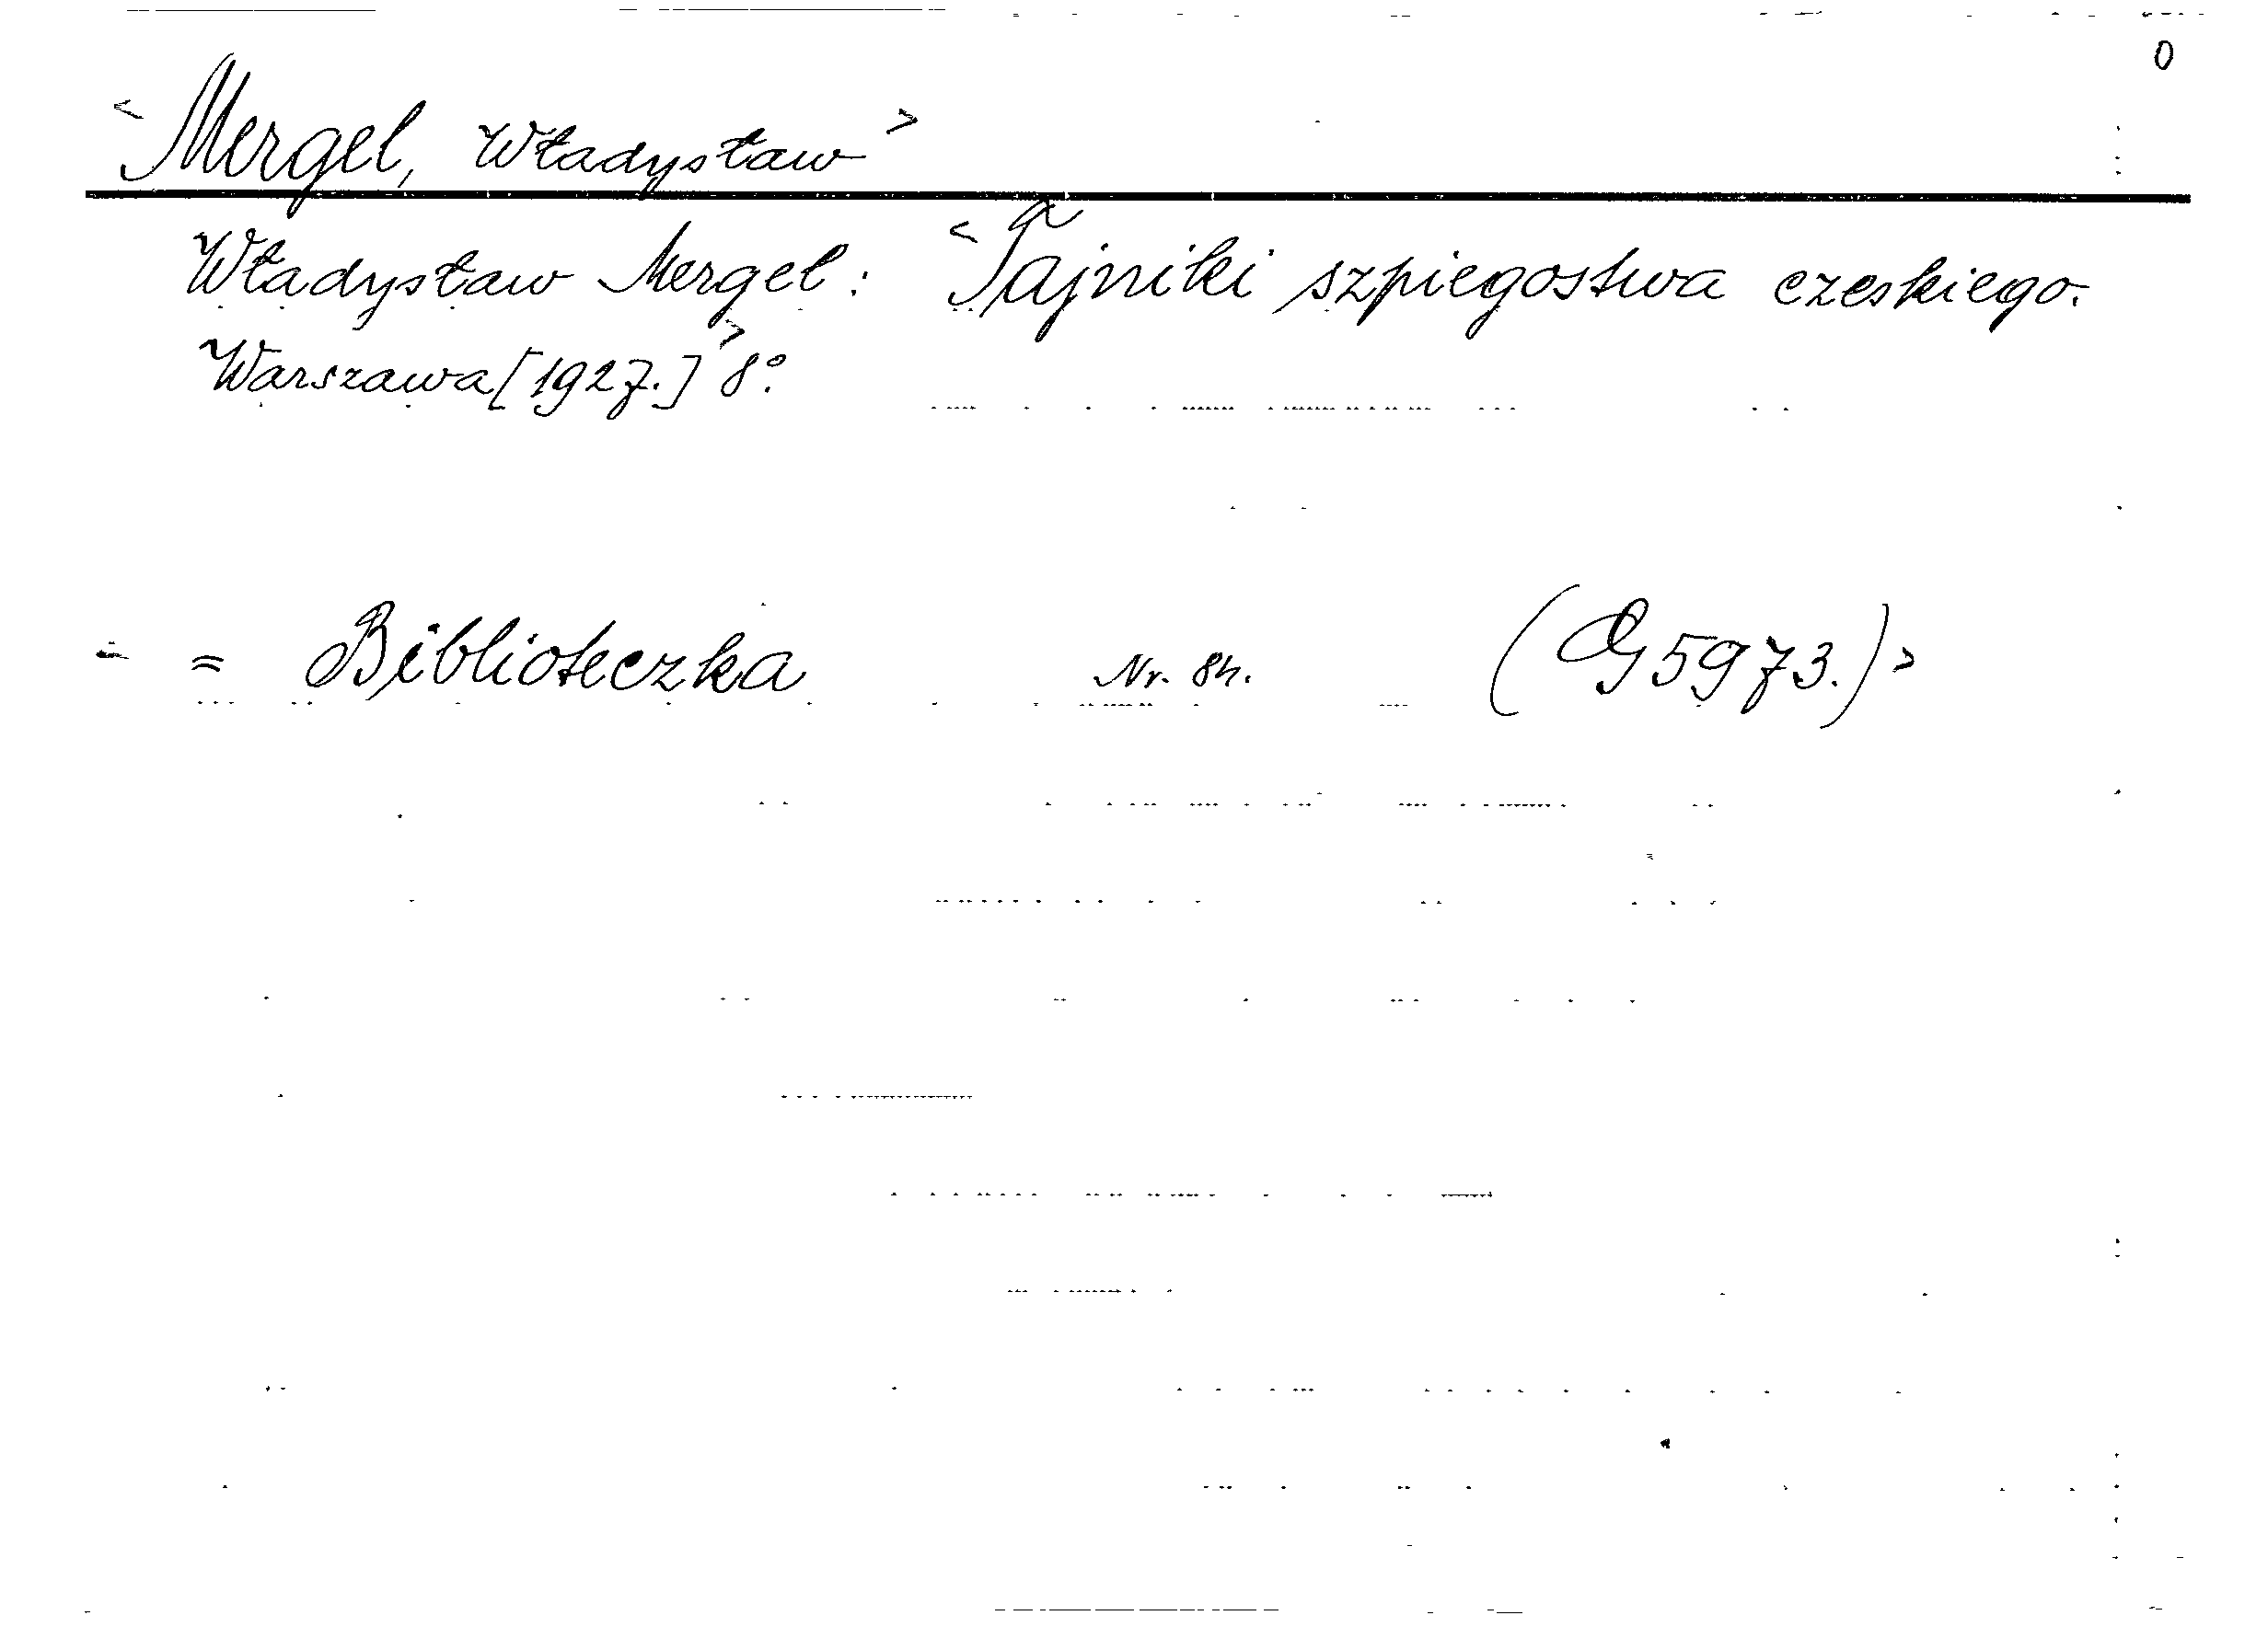 0
<Mergel, Władysław>
Władysław Mergel: <Tajniki szpiegostwa czeskiego.
Warszawa [1927.]> 8°.
= Biblioteczka Nr. 84. (G 5973.)>